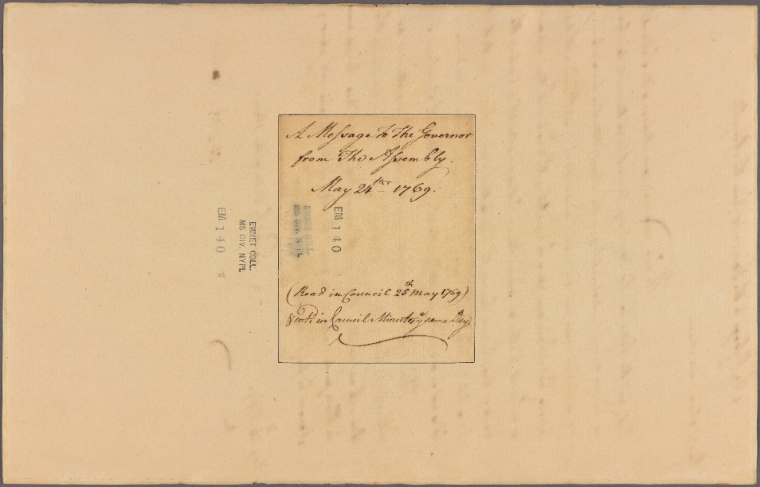 A Message to The Governor
from The Assembly.
May 24th 1769.
EM 140
EMMET COLL.
MS DIV. NYPL
EM 140
(Read in Council 25th May 1769)
& in Council Minutes ye same day)